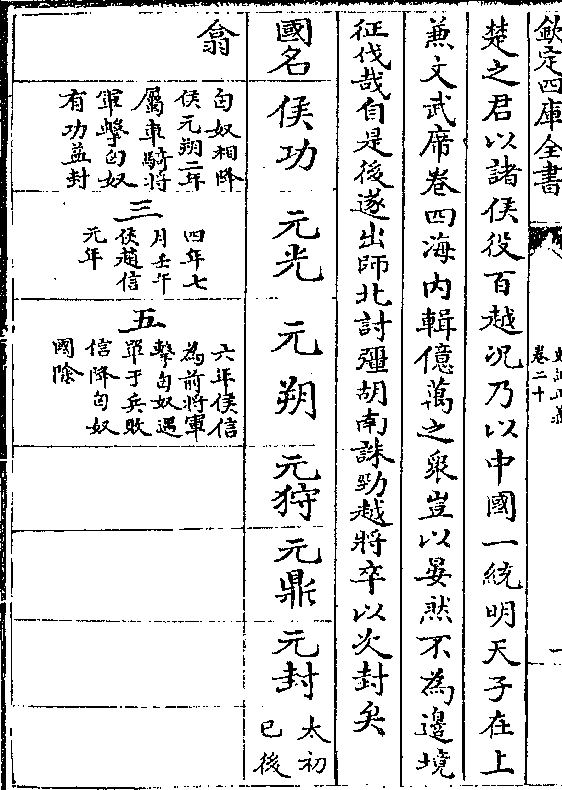 欽定四庫全書
卷二十
楚之君以諸侯役百越况乃以中國一統明天子在上
兼文武席卷四海内輯億萬之衆豈以晏然不為邊境
征伐哉自是後遂出師北討彊胡南誅勁越將卒以次封矣
國名
侯功
元光
元朔
元狩
元鼎
元封
太初
已後
翕
匈奴相降
侯元朔二年
屬車騎將
軍擊匈奴
有功益封
三
四年七
月壬午
侯趙信
元年
五
六年侯信
為前將軍
擊匈奴遇
單于兵敗
信降匈奴
國除